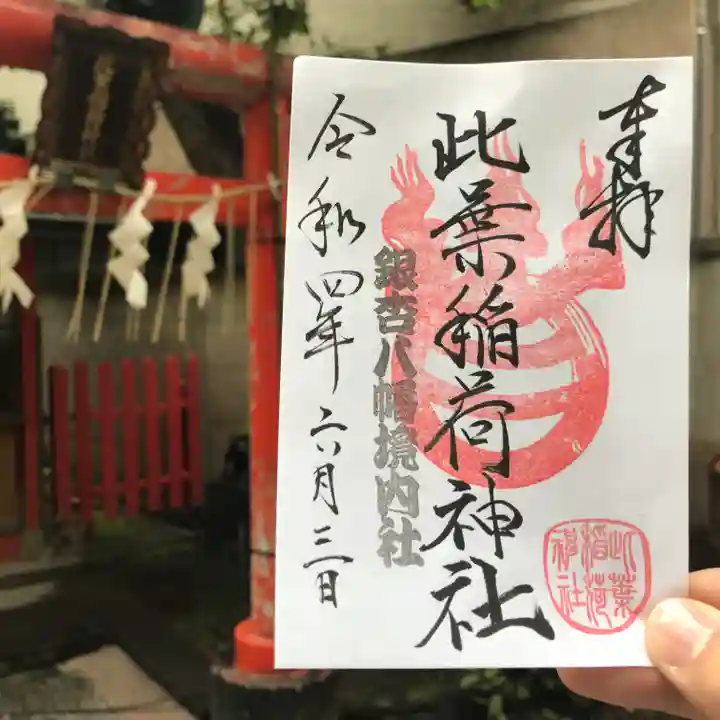 奉拝
此葉稲荷神社
銀杏八幡境内社
令和四年六月三日
此葉
稲荷
神社